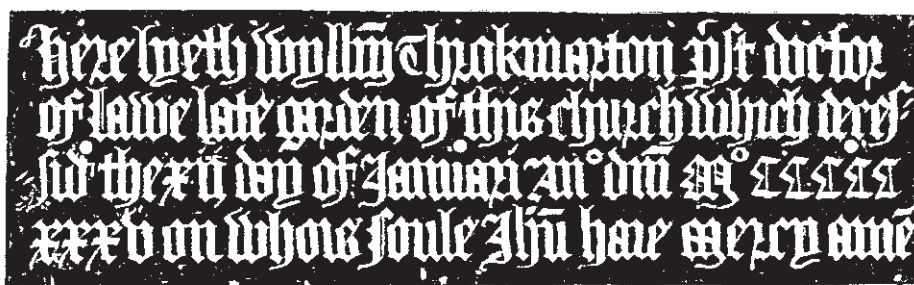 Here lyeth Wyllm̄ Throkmarton p̄st doctor
of lawe late garden of this church which deces-
sid the xii day of Januari an° dm̄ M° CCCCC
xxxv on whois soule Jhū have mercy amē